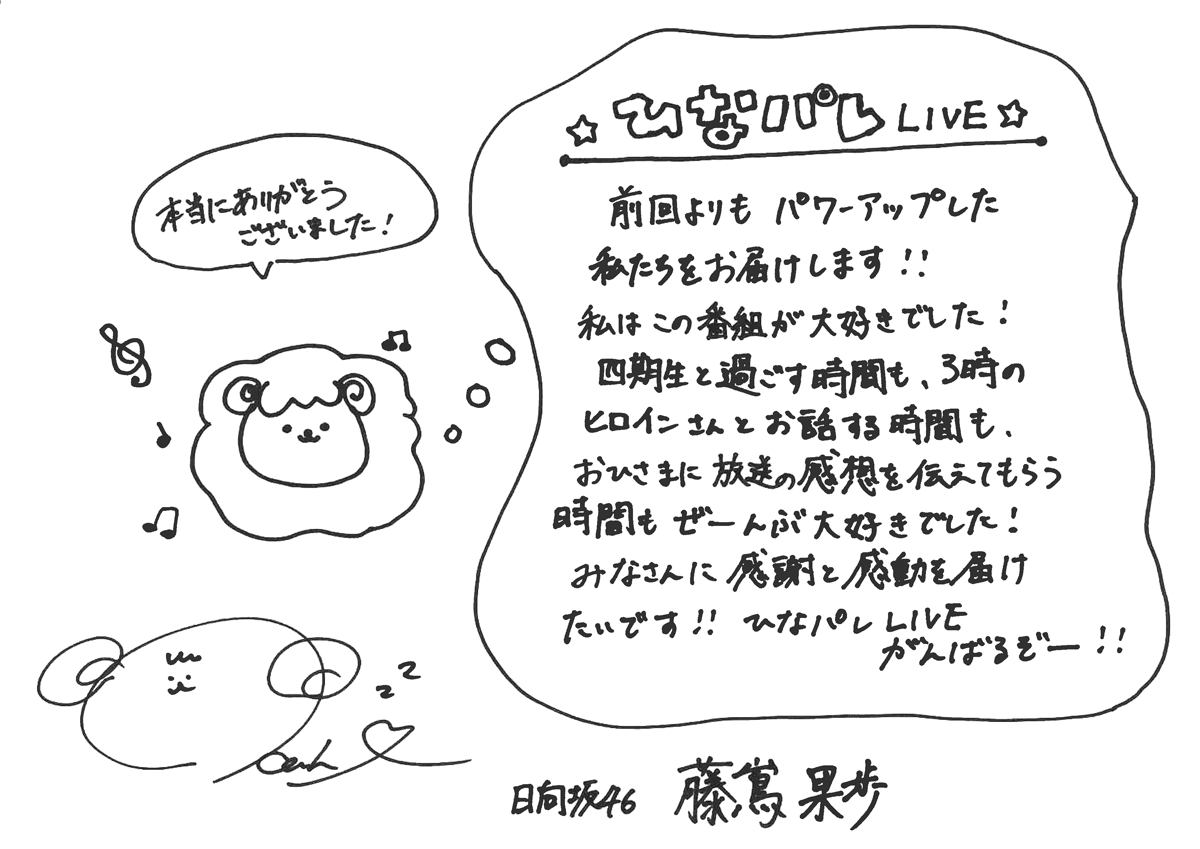 本当にありがとう
ございました!
☆ひなパレ LIVE☆
前回よりも パワーアップした
私たちをお届けします!!
私はこの番組が大好きでした!
四期生と過ごす時間も、3時の
ヒロインさんとお話する時間も、
おひさまに放送の感想を伝えてもらう
時間もぜーんぶ大好きでした!
みなさんに感謝と感動を届け
たいです!! ひなパレ LIVE
がんばるぞー!!
zz
日向坂46 藤嶌果歩